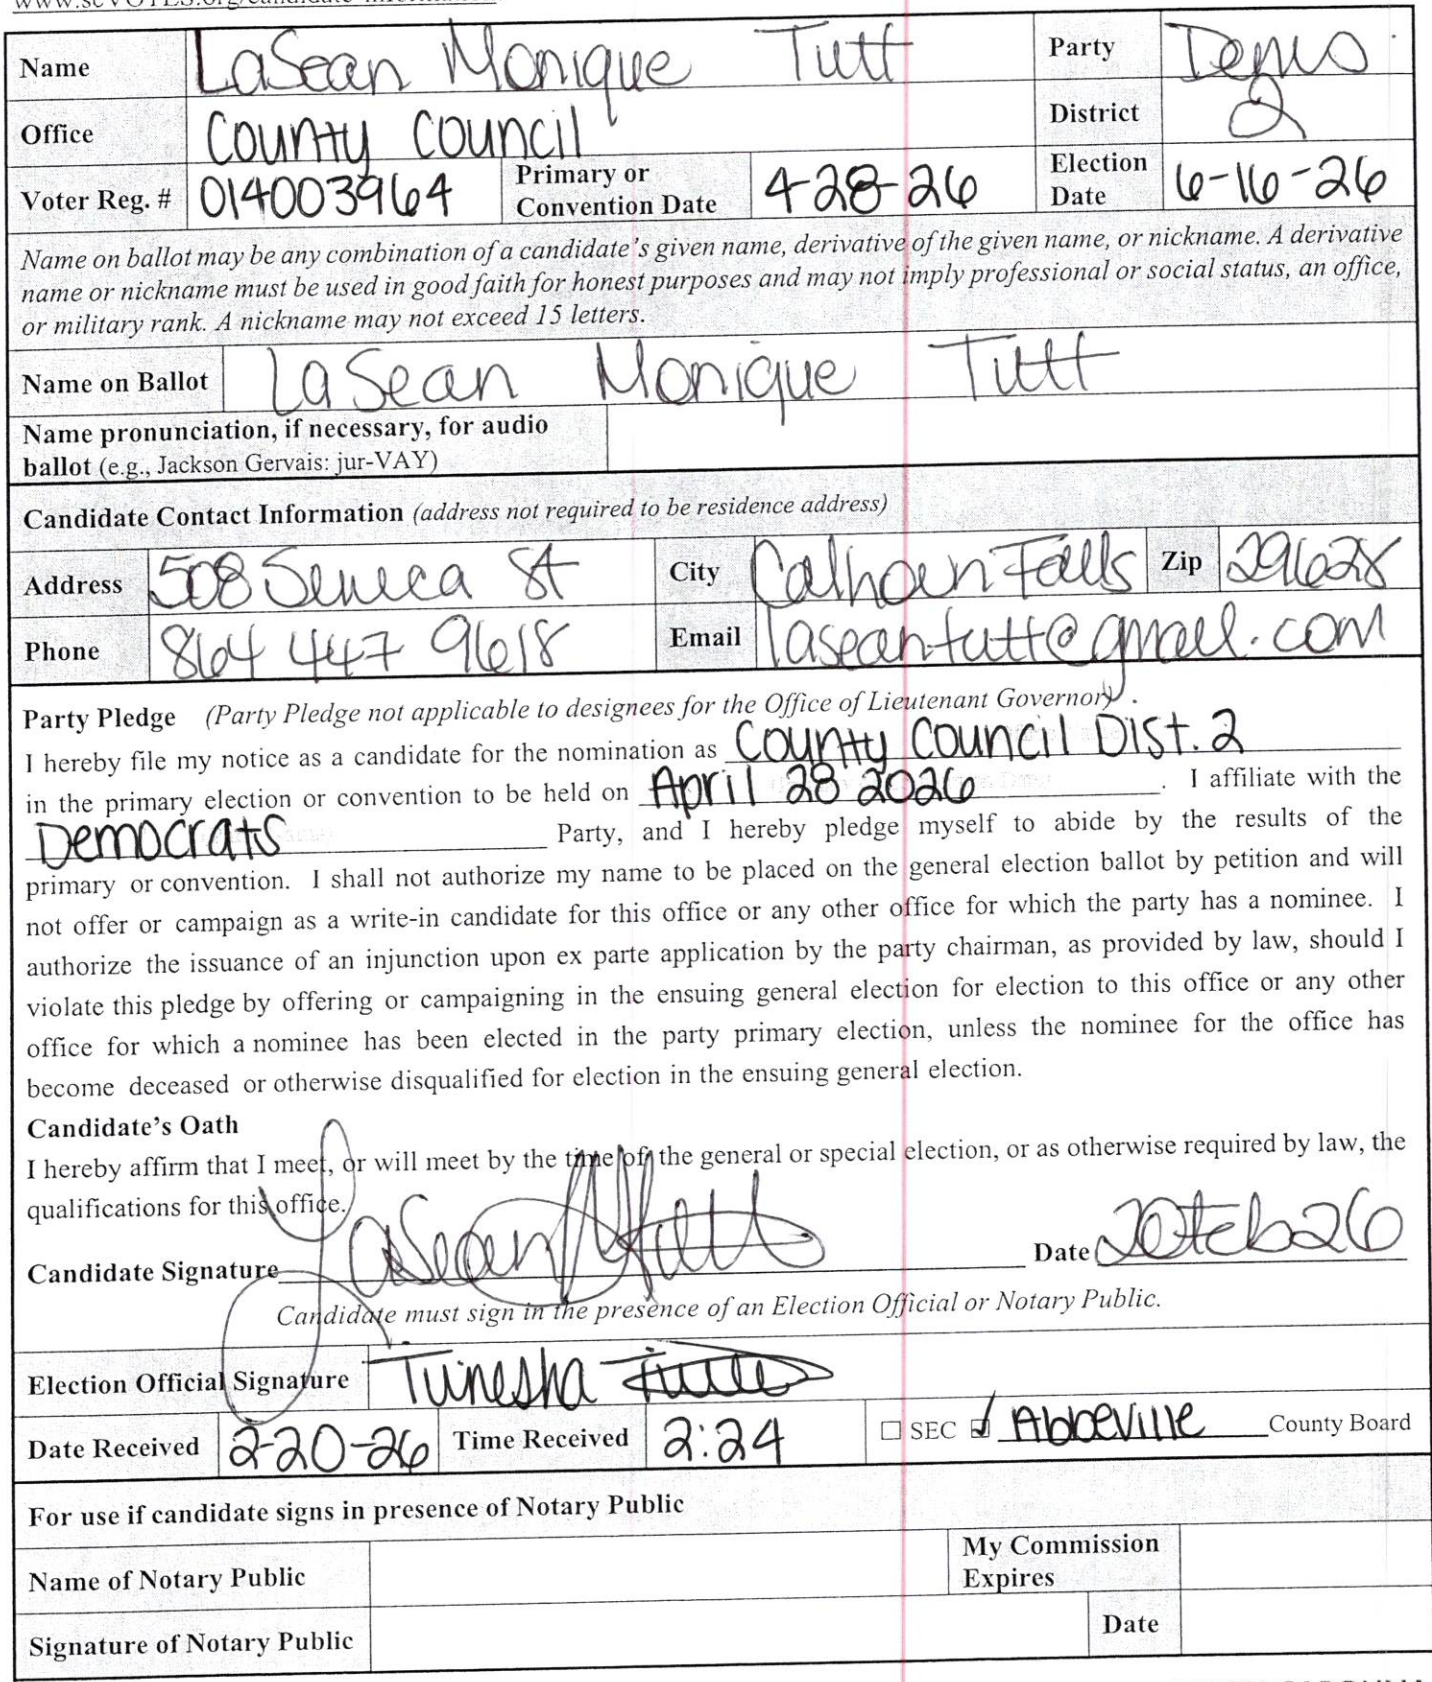 Name LaSean Monique Tutt Party Dems
Office County Council District 2
Voter Reg. # 014003964 Primary or Convention Date 4-28-26 Election Date 6-16-26
Name on ballot may be any combination of a candidate's given name, derivative of the given name, or nickname. A derivative
name or nickname must be used in good faith for honest purposes and may not imply professional or social status, an office,
or military rank. A nickname may not exceed 15 letters.
Name on Ballot LaSean Monique Tutt
Name pronunciation, if necessary, for audio
ballot (e.g., Jackson Gervais: jur-VAY)
Candidate Contact Information (address not required to be residence address)
Address 508 Seneca St City Calhoun Falls Zip 29628
Phone 864 447 9618 Email laseantutt@gmail.com
Party Pledge (Party Pledge not applicable to designees for the Office of Lieutenant Governor).
I hereby file my notice as a candidate for the nomination as County Council Dist. 2
in the primary election or convention to be held on April 28 2026. I affiliate with the
Democrats Party, and I hereby pledge myself to abide by the results of the
primary or convention. I shall not authorize my name to be placed on the general election ballot by petition and will
not offer or campaign as a write-in candidate for this office or any other office for which the party has a nominee. I
authorize the issuance of an injunction upon ex parte application by the party chairman, as provided by law, should I
violate this pledge by offering or campaigning in the ensuing general election for election to this office or any other
office for which a nominee has been elected in the party primary election, unless the nominee for the office has
become deceased or otherwise disqualified for election in the ensuing general election.
Candidate's Oath
I hereby affirm that I meet, or will meet by the time of the general or special election, or as otherwise required by law, the
qualifications for this office.
Candidate Signature LaSean M Tutt Date 20Feb26
Candidate must sign in the presence of an Election Official or Notary Public.
Election Official Signature Tunesha
Date Received 2-20-26 Time Received 2:24 ☐ SEC ☑ Abbeville County Board
For use if candidate signs in presence of Notary Public
Name of Notary Public My Commission Expires
Signature of Notary Public Date